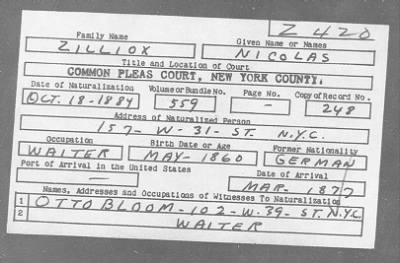 Z 420
Family Name Given Name or Names
ZILLIOX NICOLAS
Title and Location of Court
COMMON PLEAS COURT, NEW YORK COUNTY.
Date of Naturalization Volume or Bundle No. Page No. Copy of Record No.
OCT. 18-1884 559 - 248
Address of Naturalized Person
157- W- 31- ST. N.Y.C.
Occupation Birth Date or Age Former Nationality
WAITER MAY- 1860 GERMAN
Port of Arrival in the United States Date of Arrival
— MAR- 1877
Names, Addresses and Occupations of Witnesses To Naturalization
1 OTTO BLOOM- 102- W. 39- ST. N.Y.C.
2 WAITER